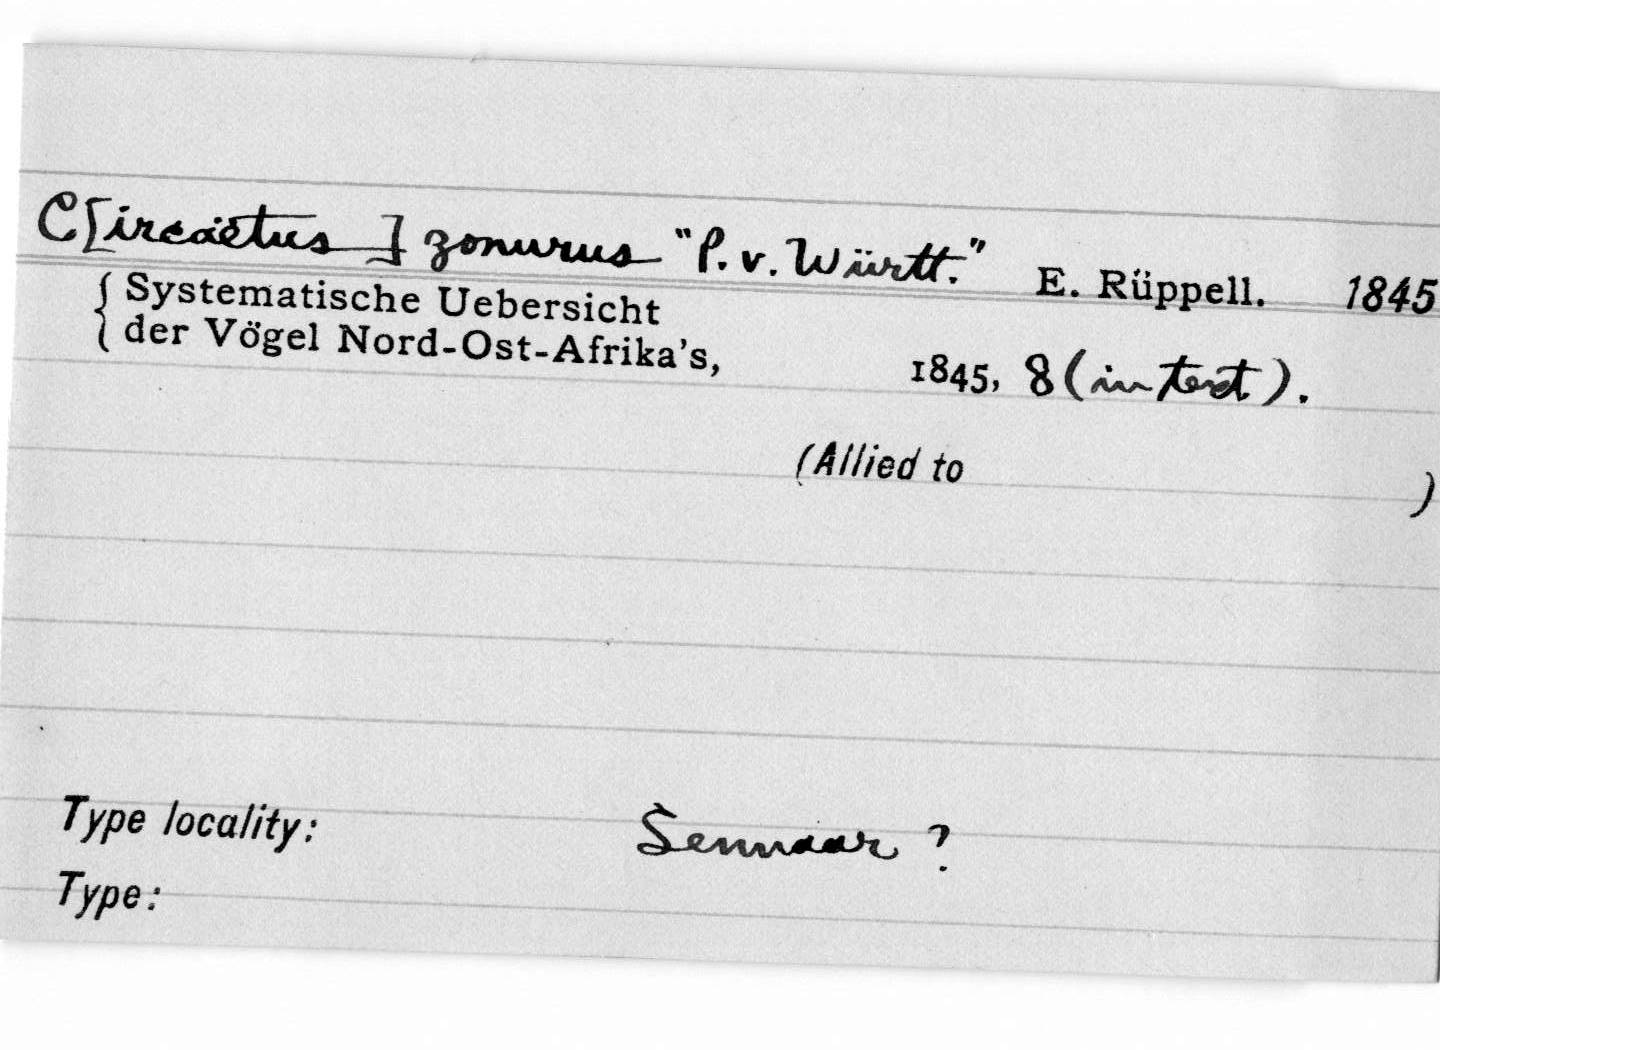 C[ircaëtus] zonurus "P. v. Württ." E. Rüppell. 1845
Systematische Uebersicht
der Vögel Nord-Ost-Afrika's, 1845, 8 (in text).
(Allied to )
Type locality: Sennaar ?
Type: